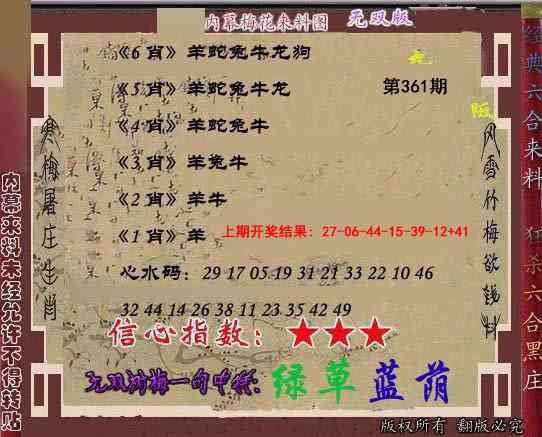 内幕梅花来料图 无双版
《6肖》羊蛇兔牛龙狗
《5肖》羊蛇兔牛龙
第361期
《4肖》羊蛇兔牛
《3肖》羊兔牛
《2肖》羊牛
《1肖》羊
上期开奖结果：27-06-44-15-39-12+41
心水码：29 17 05.19 31 21 33 22 10 46
32 44 14 26 38 11 23 35 42 49
信心指数：★★★
绿草 蓝荫
寒梅屠庄生肖
风雪竹梅欲钱料
内幕来料未经允许不得转贴
经典六合来料
狂杀六合黑庄
版权所有 翻版必究